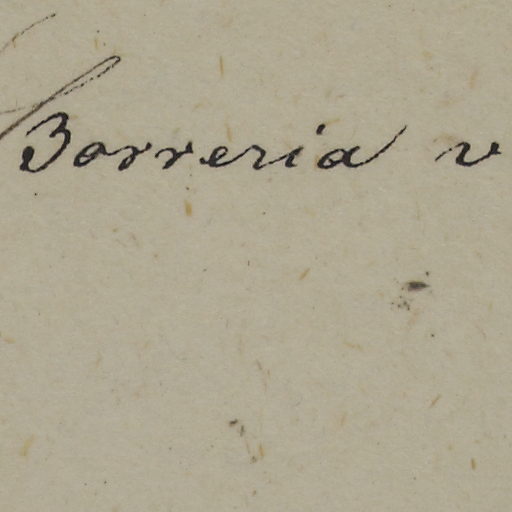 Borreria v